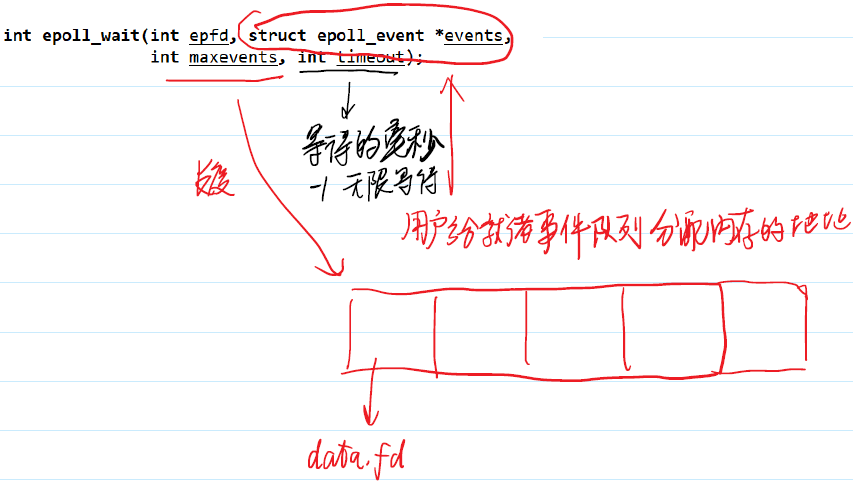 int epoll_wait(int epfd, struct epoll_event *events,
int maxevents, int timeout);
等待的毫秒
-1 无限等待
长度
用户给就绪事件队列分配内存的地址
data.fd